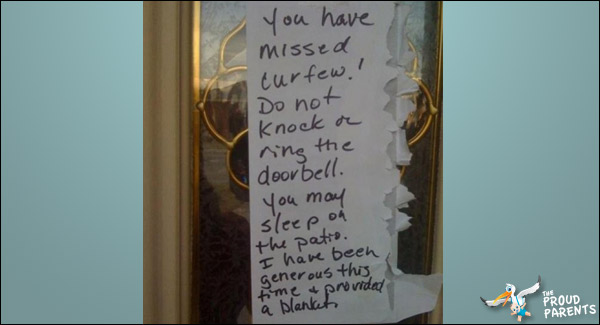 You have
missed
curfew!
Do not
knock or
ring the
doorbell.
You may
sleep on
the patio.
I have been
generous this
time & provided
a blanket.
THE PROUD
PARENTS